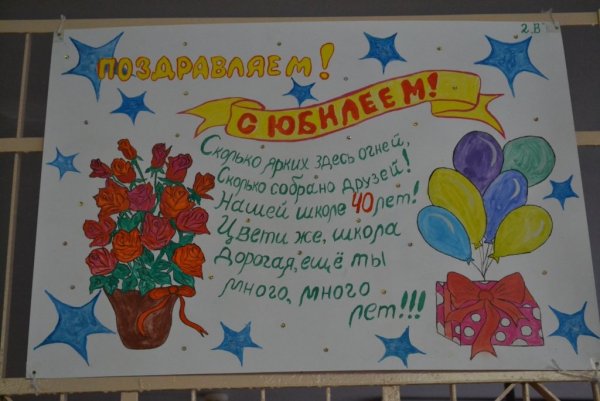 2.В
ПОЗДРАВЛЯЕМ!
С ЮБИЛЕЕМ!
Сколько ярких здесь огней,
Сколько собрано друзей!
Нашей школе 40 лет!
Цвети же, школа
Дорогая, ещё ты
много, много
лет!!!